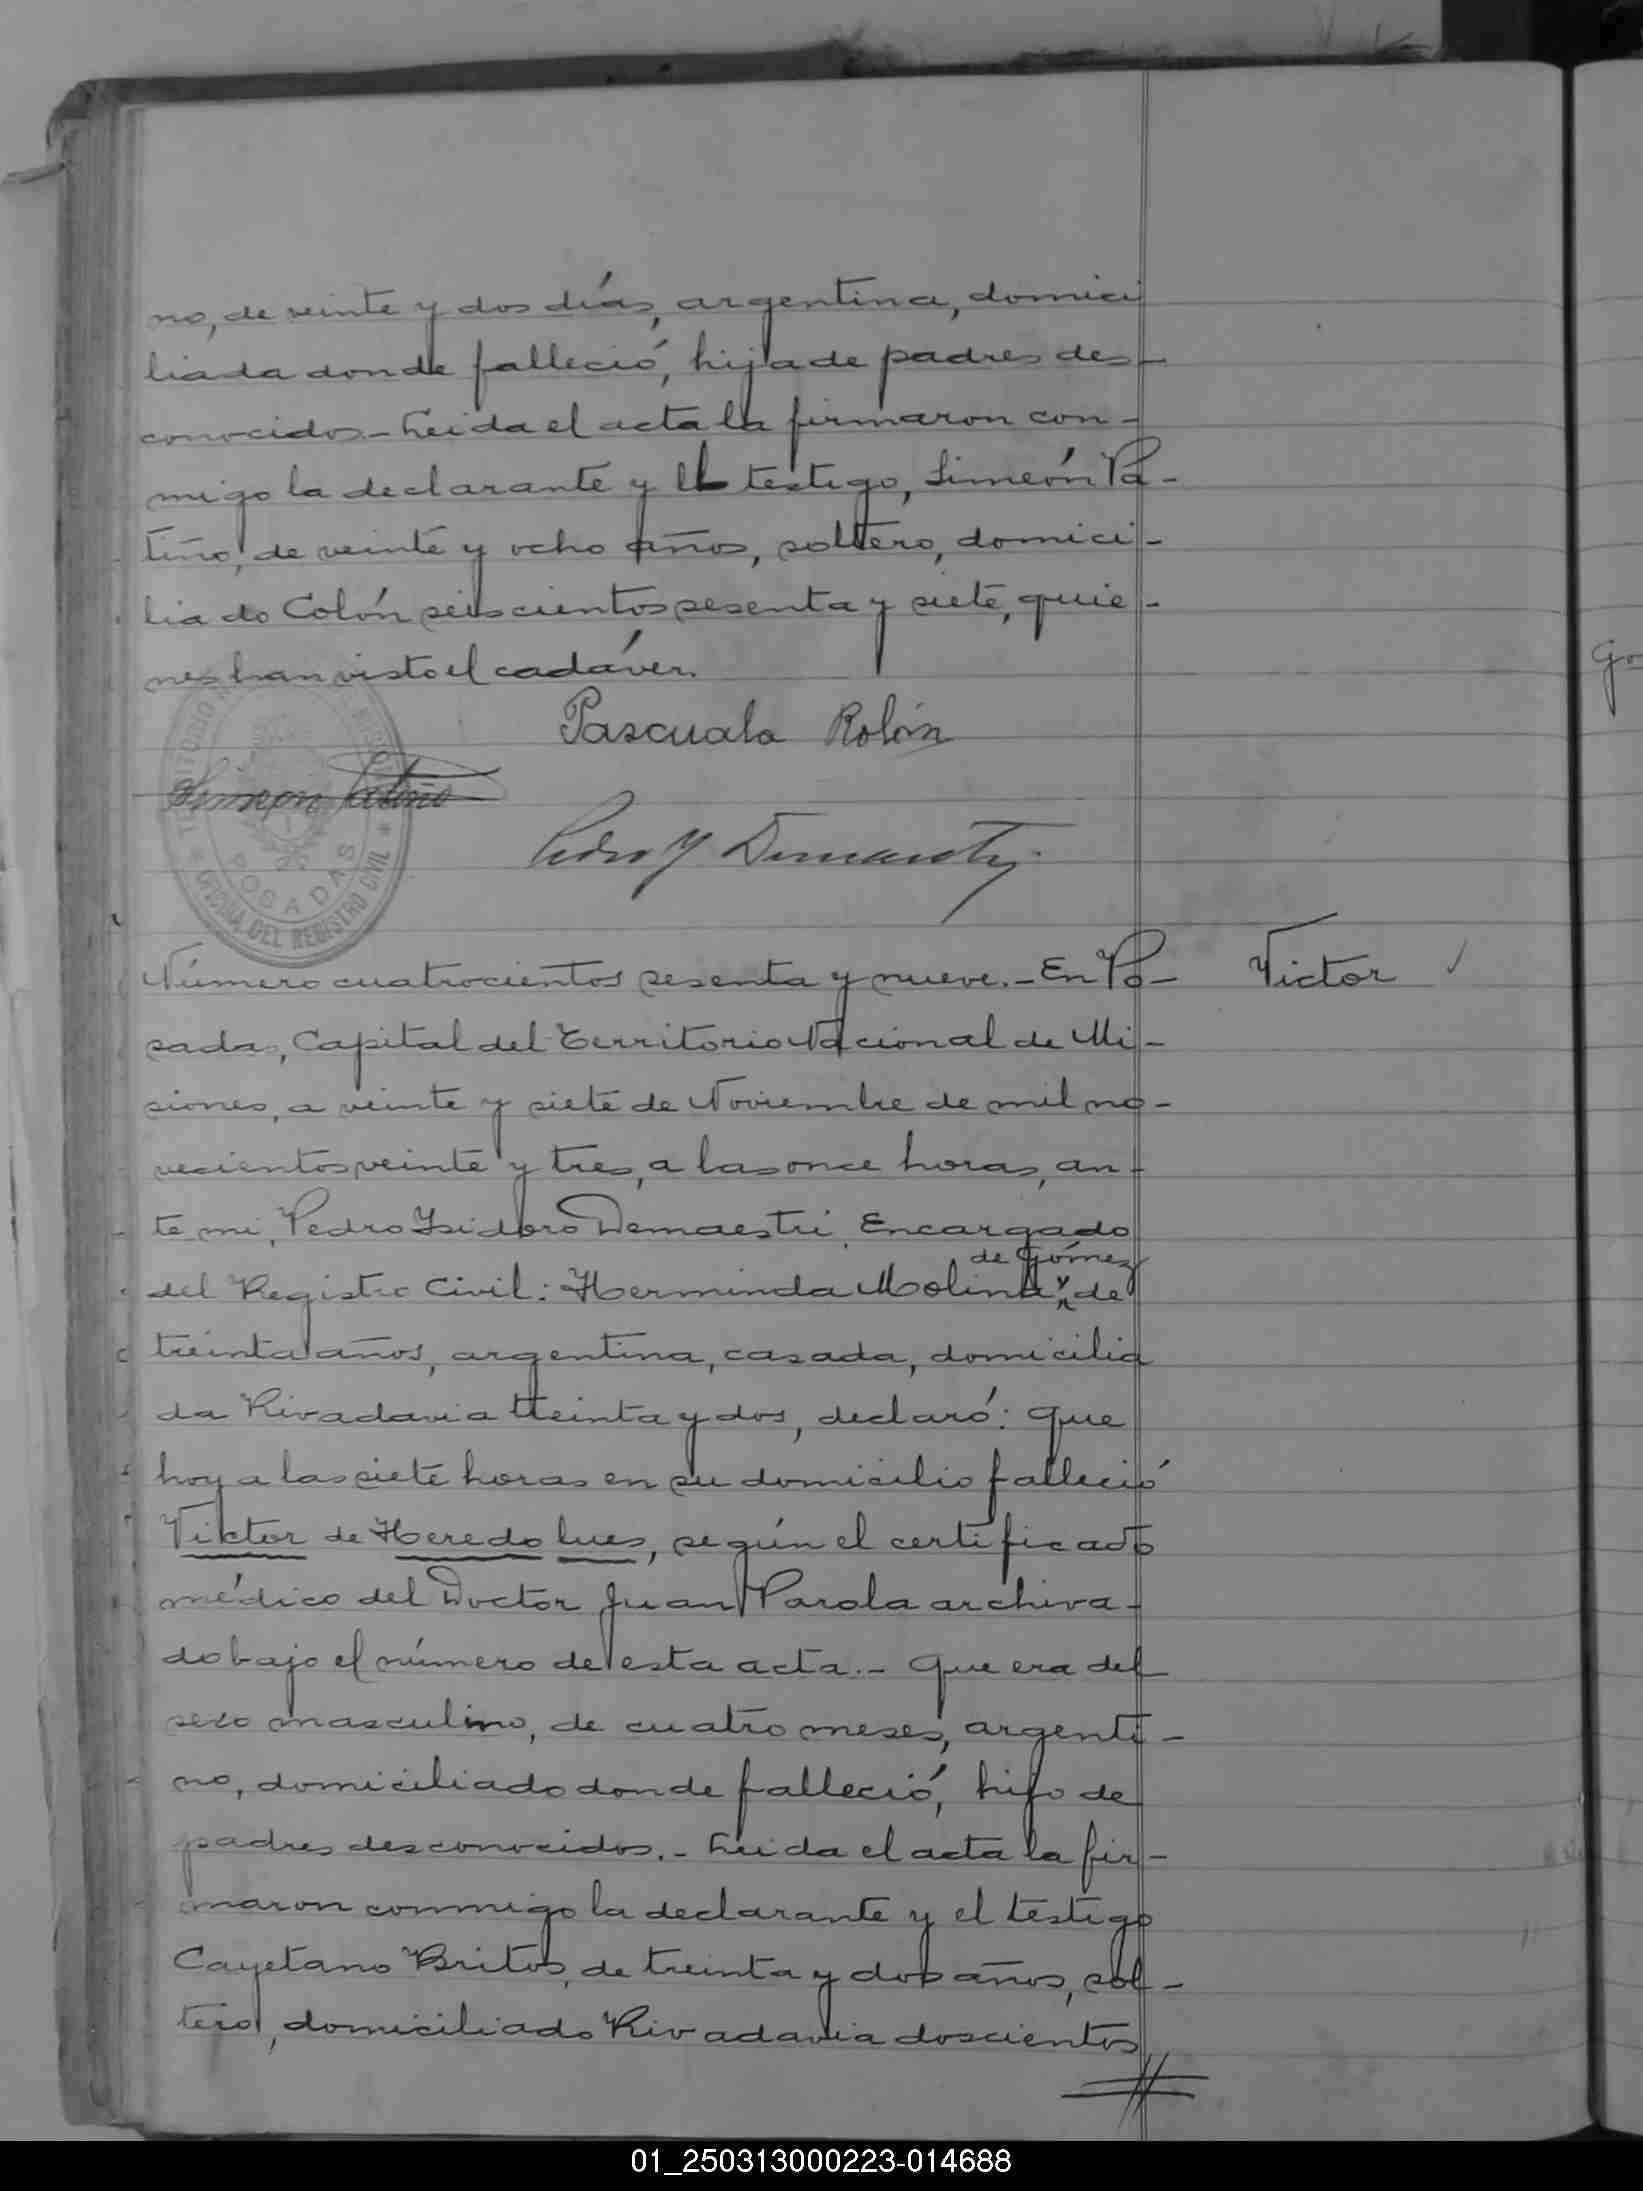 no, de veinte y dos días, argentina, domici
liada donde falleció, hija de padres des-
conocidos.- Leida el acta la firmaron con-
migo la declarante y el testigo, Simeón Pa-
tiño, de veinte y ocho años, soltero, domici-
liado Colón seiscientos sesenta y siete, quie-
nes han visto el cadáver.
Pascuala Rolón
Simeon Patiño
Pedro Y Demaestri
TERRITORIO
POSADAS
OFICINA DEL REGISTRO CIVIL
Número cuatrocientos sesenta y nueve.- En Po-
Victor
sadas, Capital del Territorio Nacional de Mi-
siones, a veinte y siete de Noviembre de mil no-
vecientos veinte y tres, a las once horas, an-
te mi, Pedro Ysidoro Demaestri, Encargado
de Gómez
del Registro Civil: Herminda Molina, de
treinta años, argentina, casada, domicilia
da Rivadavia treinta y dos, declaró: Que
hoy a las siete horas en su domicilio falleció
Victor de Heredo lues, según el certificado
médico del Doctor Juan Parola archiva-
do bajo el número de esta acta.- Que era del
sexo masculino, de cuatro meses, argenti-
no, domiciliado donde falleció, hijo de
padres desconocidos.- Leida el acta la fir-
maron conmigo la declarante y el testigo
Cayetano Britos, de treinta y dos años, sol-
tero, domiciliado Rivadavia doscientos
01_250313000223-014688